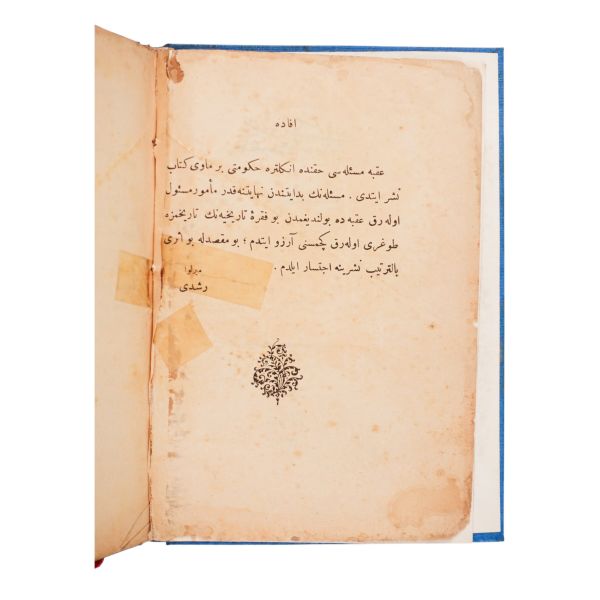 افاده
عقبه مسئله سی حقنده انکلتره حکومتی بر ماوی کتاب
نشر ایتدی . مسئله نك بدایتندن نهایتنه قدر مأمور مسئول
اوله رق عقبه ده بولندیغمدن بو فقرهٔ تاریخیه نك تاریخمزه
طوغری اوله رق کچمسنی آرزو ایتدم ؛ بو مقصدله بو اثری
بالترتیب نشرینه اجتسار ایلدم .
میرلوا
رشدی